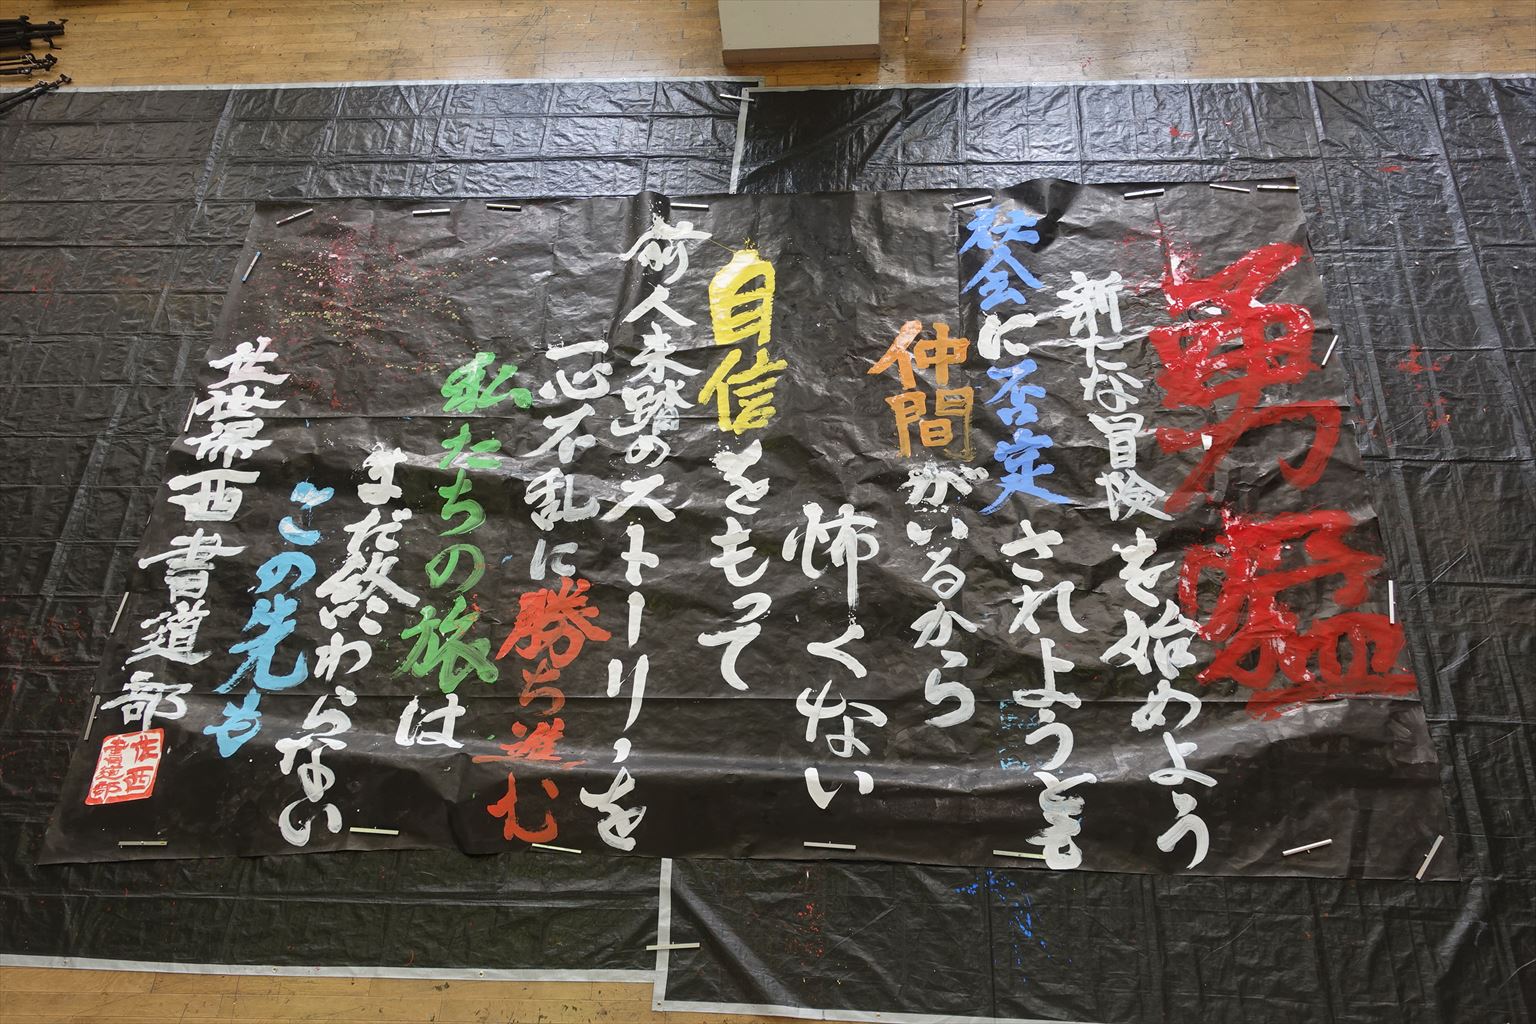 勇猛
新たな冒険を始めよう
社会に否定されようとも
仲間がいるから
怖くない
自信をもって
前人未踏のストーリーを
一心不乱に勝ち進む
私たちの旅は
まだ終わらない
この先も
佐世保西書道部
佐西
書道部